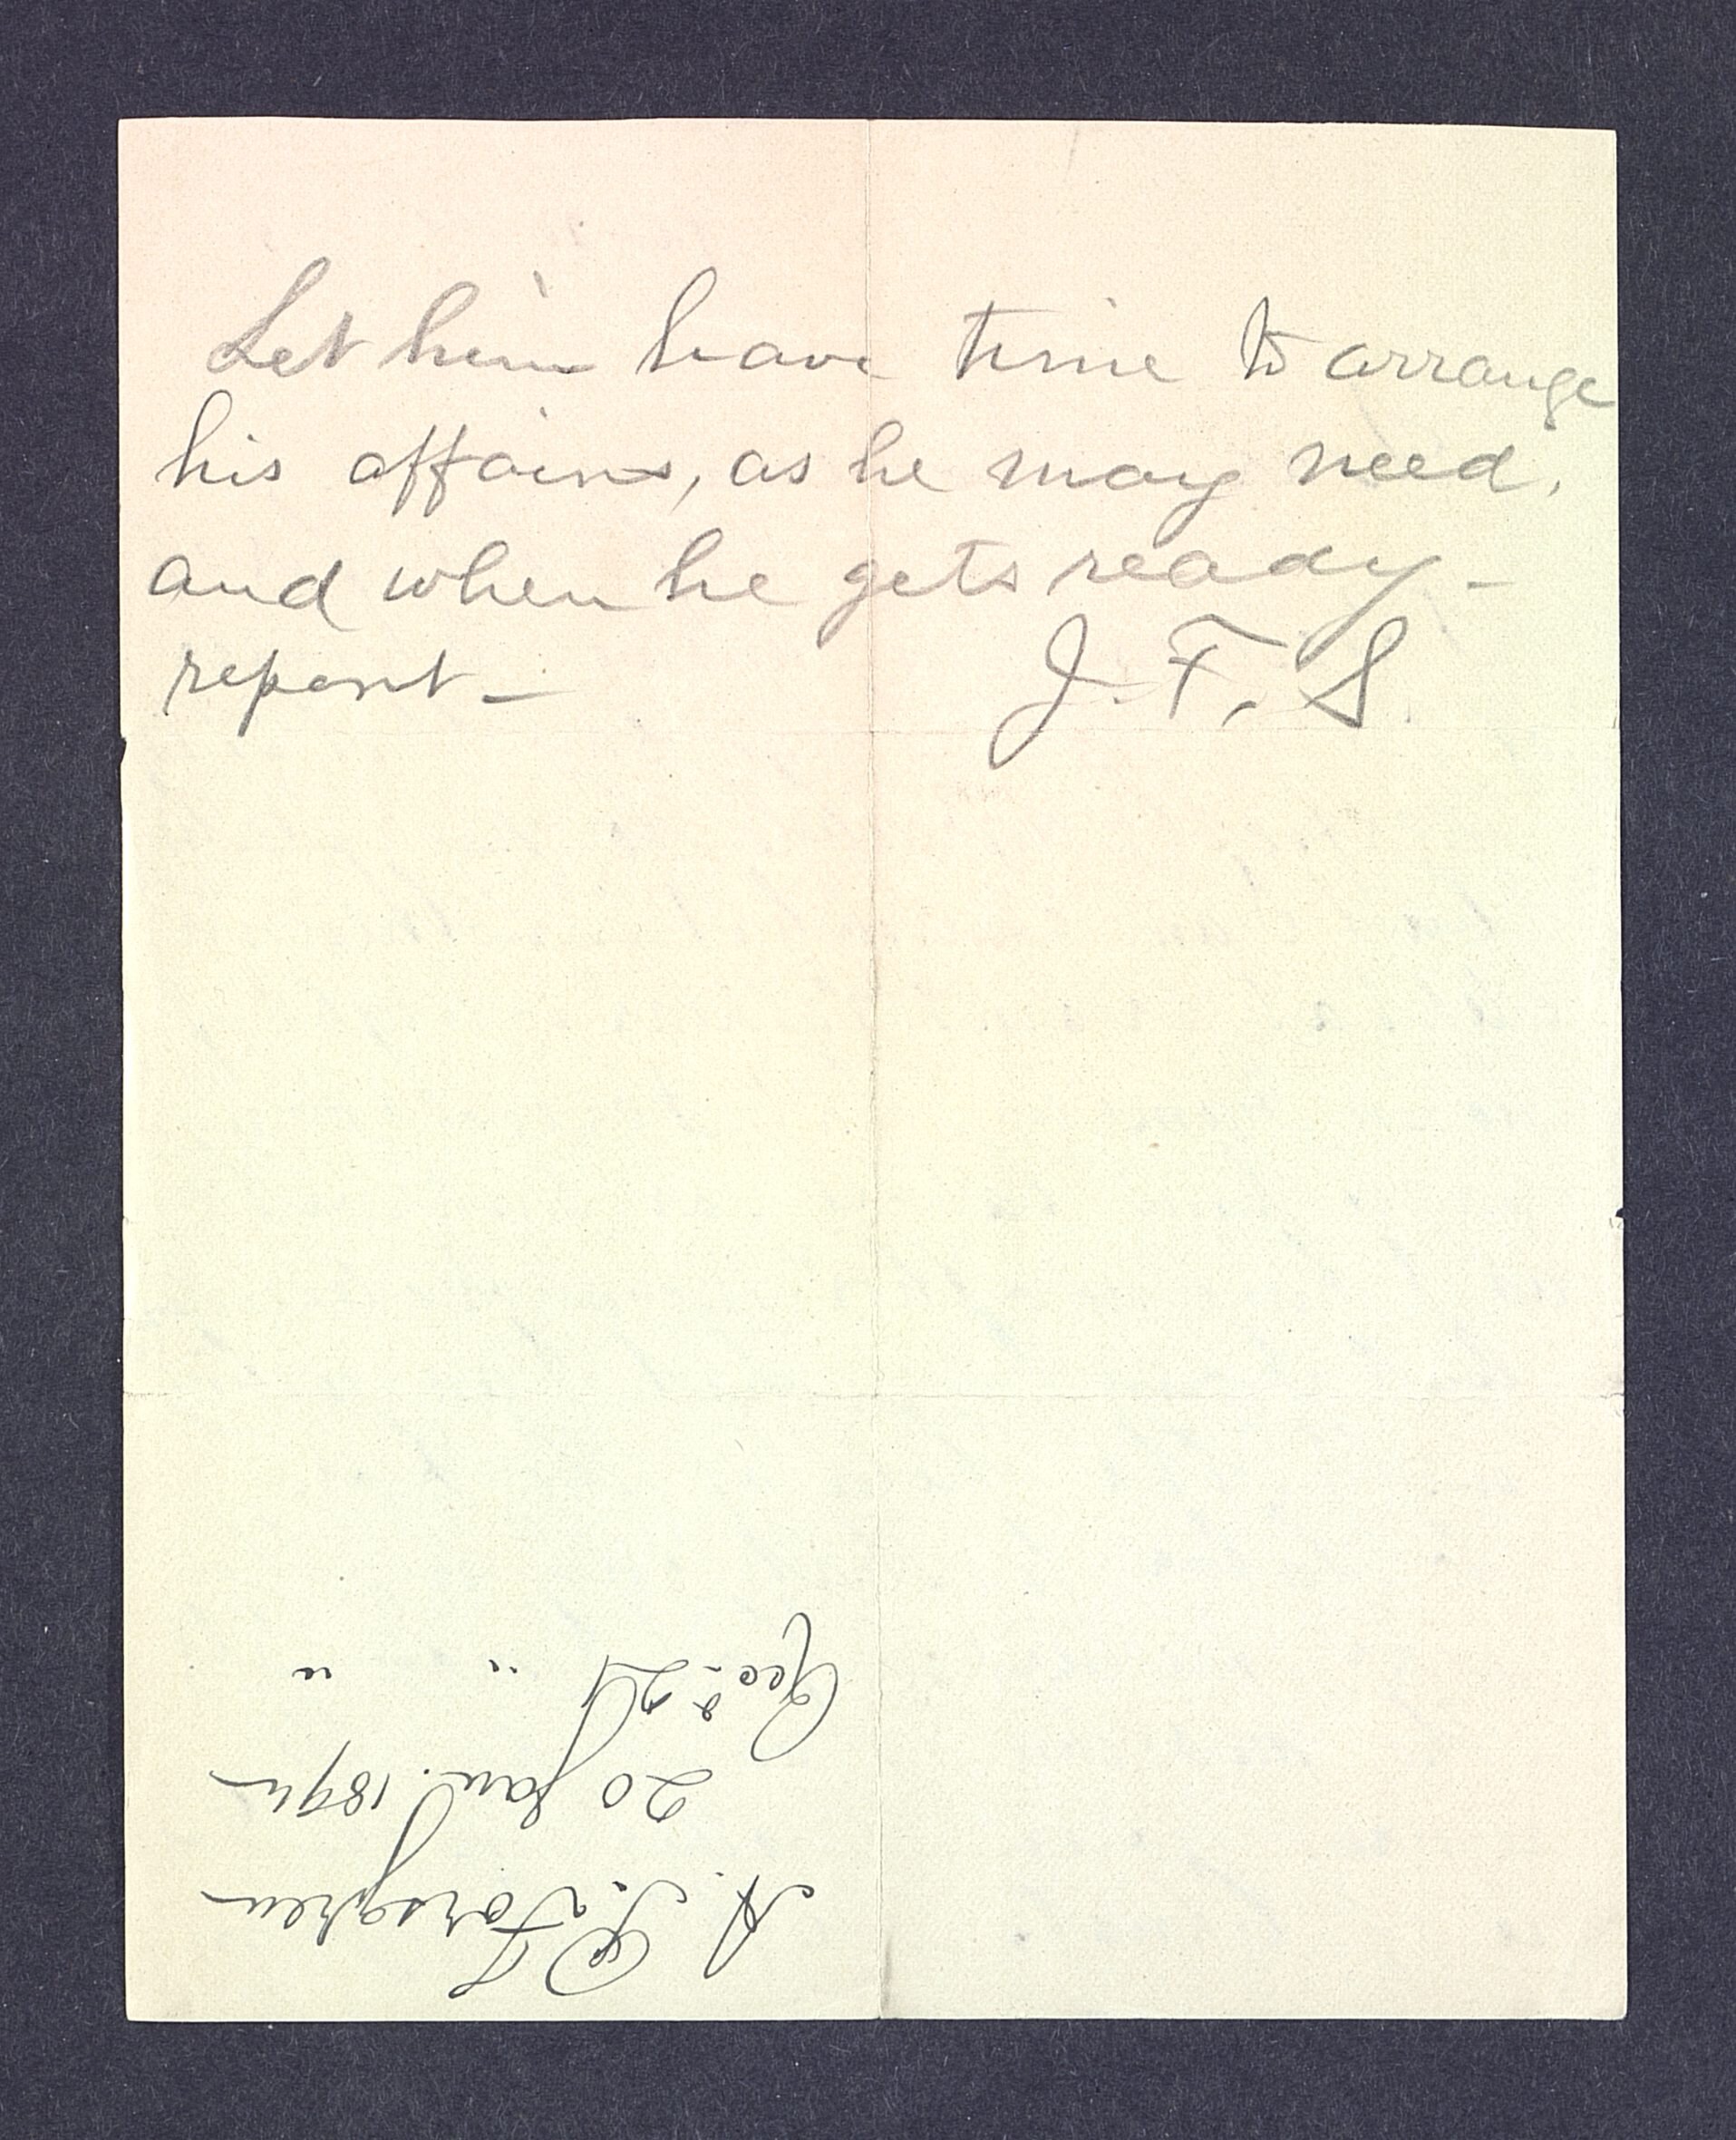 Let him have time to arrange
his affairs, as he may need,
and when he gets ready -
report - J. F. S.
A. P. Forsgren
20 Jan. 1894
Rec'd 21 " "